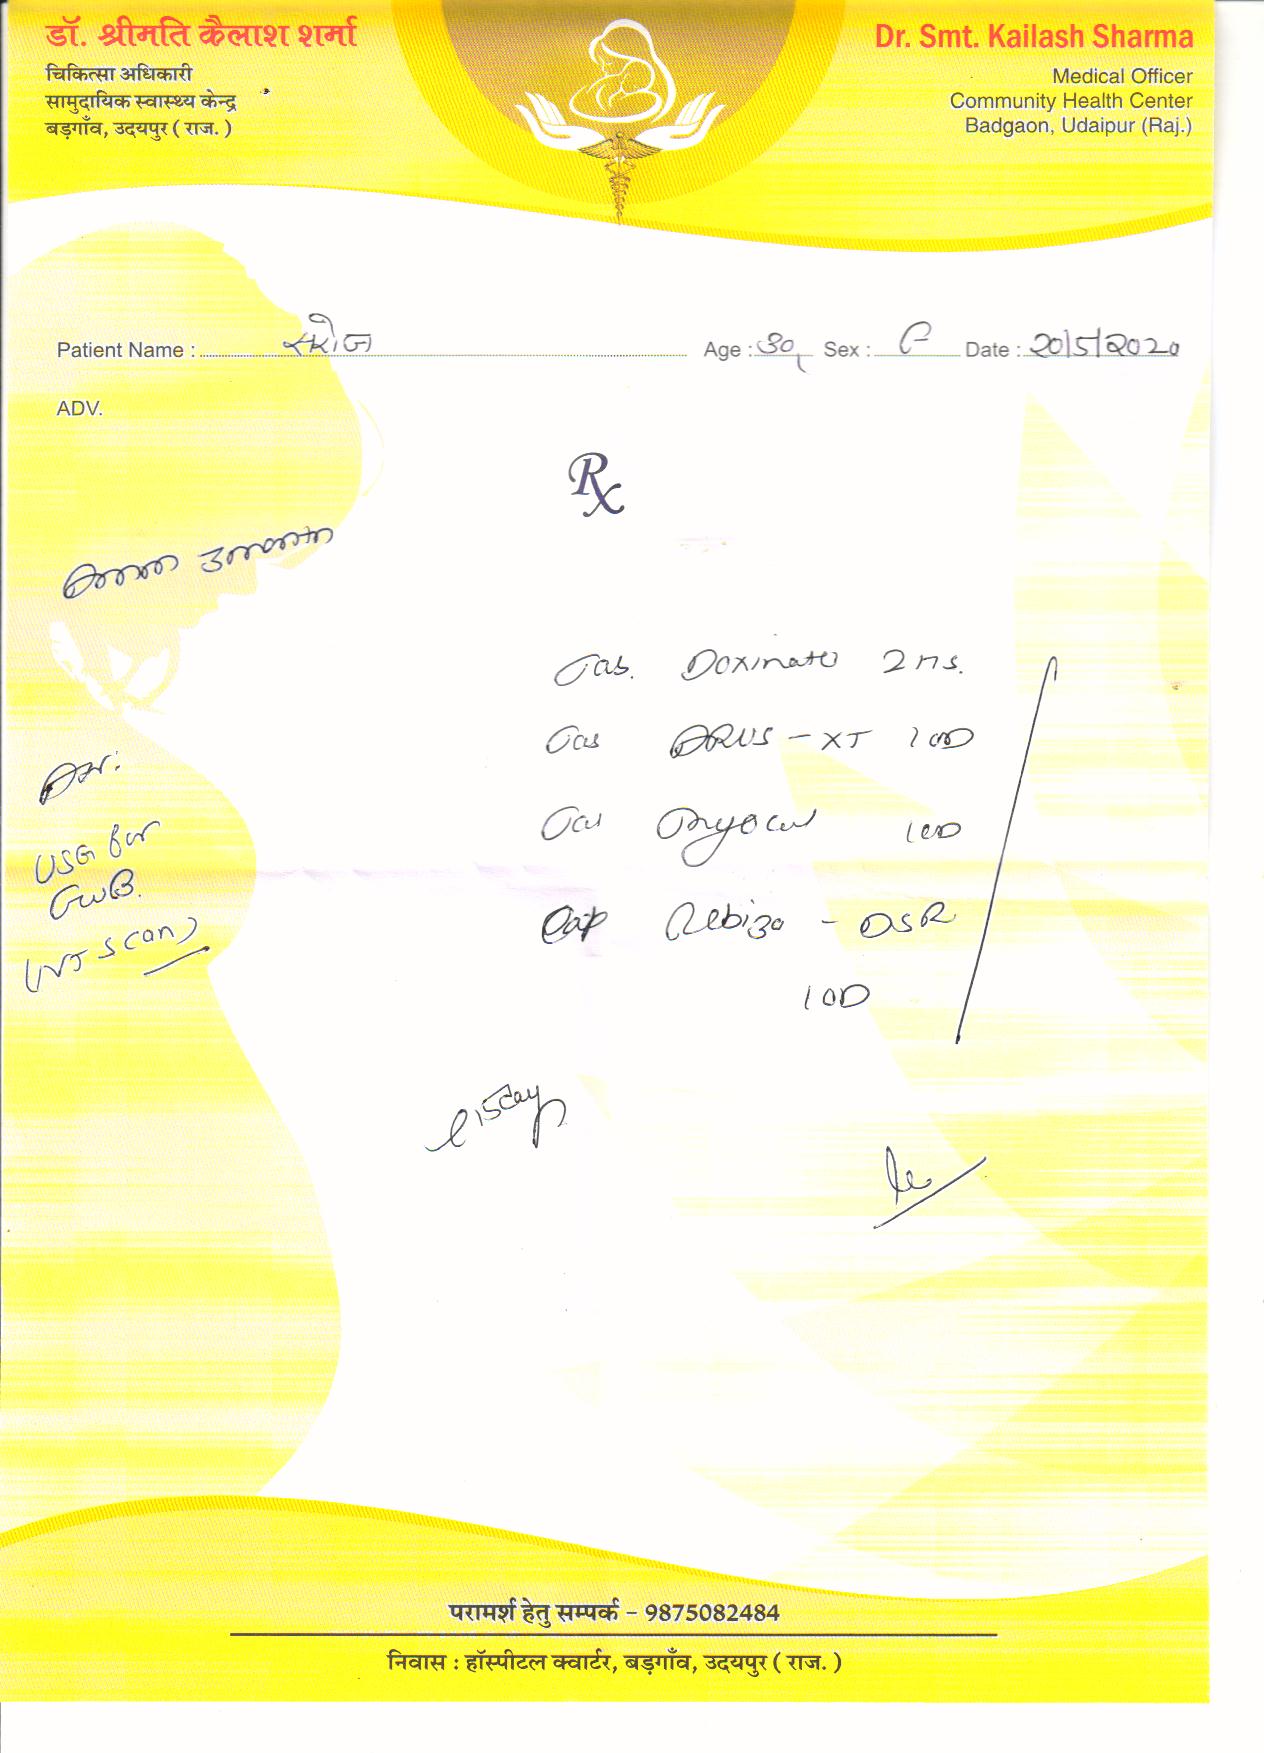 डॉ. श्रीमति कैलाश शर्मा
चिकित्सा अधिकारी
सामुदायिक स्वास्थ्य केन्द्र
बड़गाँव, उदयपुर ( राज. )
Dr. Smt. Kailash Sharma
Medical Officer
Community Health Center
Badgaon, Udaipur (Raj.)
Patient Name : सरोज Age : 30 Sex : F Date : 20/5/2020
ADV.
Rx
Tab. Doxinate 2 HS.
Tab - XT 1 OD
Tab 1 OD
Cap Rebiza - DSR
1 OD
USG for
FWB.
(NT Scan)
15 day
परामर्श हेतु सम्पर्क – 9875082484
निवास : हॉस्पीटल क्वार्टर, बड़गाँव, उदयपुर ( राज. )